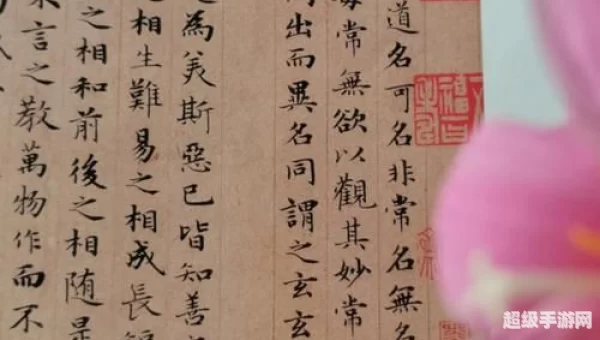 道名可名非常名無名
常無欲以觀其妙常
出而異名同謂之玄玄
為美斯惡已皆知善
相生難易之相成長
之相和前後之相随是
言之教萬物作而不
超级手游网